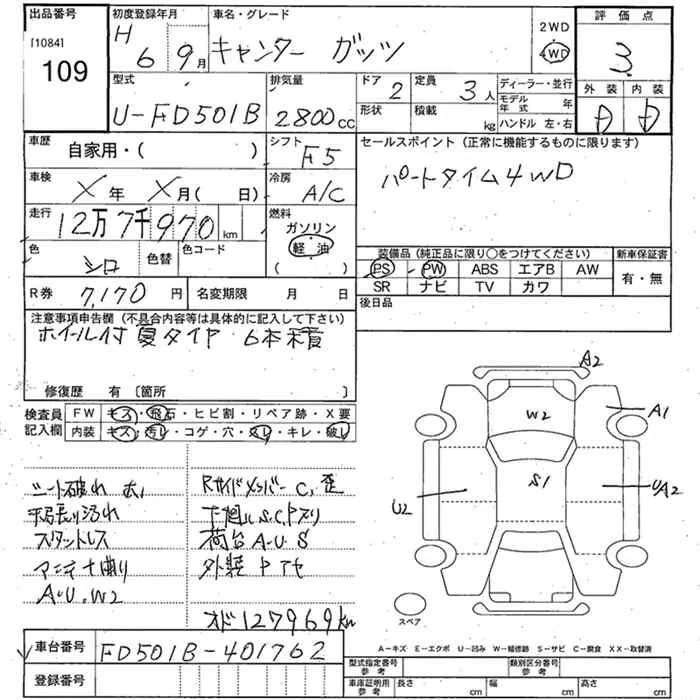 出品番号
[1084]
109
初度登録年月
H 6 9月
車名・グレード
キャンター ガッツ
2WD
4WD
評価点
3
外装 内装
D D
型式
U-FD501B
排気量
2800cc
ドア
2
形状
定員
3人
積載
kg
ディーラー・並行
モデル年式 年
ハンドル 左・右
車歴
自家用・( )
シフト
F5
セールスポイント (正常に機能するものに限ります)
パートタイム4WD
車検
X年 X月( 日)
冷房
A/C
走行
12万7千970km
燃料
ガソリン
軽油
( )
色
シロ
色替
色コード
装備品 (純正品に限り○をつけてください)
新車保証書
PS PW ABS エアB AW
SR ナビ TV カワ
有・無
R券
7,170円
名変期限 月 日
後日品
注意事項申告欄 (不具合内容等は具体的に記入して下さい)
ホイール付 夏タイヤ 6本積
修復歴 有 〔箇所 〕
検査員記入欄
FW キズ・飛石・ヒビ割・リペア跡・X要
内装 キズ・汚レ・コゲ・穴・スレ・キレ・破レ
シート破れ 大
スタットレス
A・U、W2
Rサイドメンバー C、歪
下廻り S、C、Pスリ
荷台 A・U・S
外装 P
オド 127969km
A2
W2
A1
S1
U2
U/A2
スペア
A-キズ E-エクボ U-凹み W-補修跡 S-サビ C-腐食 XX-取替済
車台番号
FD501B-401762
登録番号
型式指定番号 参考
類別区分番号 参考
車庫証明用 参考
長さ cm
幅 cm
高さ cm